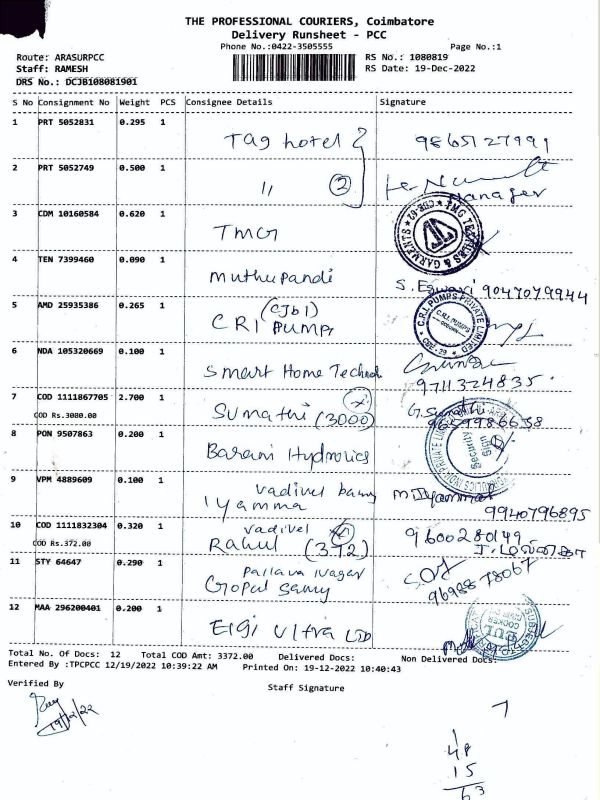 THE PROFESSIONAL COURIERS, Coimbatore
Delivery Runsheet - PCC
Phone No.:0422-3505555 Page No.:1
Route: ARASURPCC RS No.: 1080819
Staff: RAMESH RS Date: 19-Dec-2022
DRS No.: DCJB108081901
S No Consignment No Weight PCS Consignee Details Signature
1 PRT 5052831 0.295 1 Tag hotel 9865127991
2 PRT 5052749 0.500 1 11 2
manager
3 CDM 10160584 0.620 1 TMG TMG TEXTILES & GARMENTS
4 TEN 7399460 0.090 1 Muthupandi S. Eswari 9047079944
5 AMD 25935386 0.265 1 (CJb1) CRI Pumps C.R.I. PUMPS PRIVATE LIMITED
6 NDA 105320669 0.100 1 Smart Home Techno 9711324835
7 COD 1111867705 2.700 1 Sumathi (3000) G. Sumathi
COD Rs.3000.00
8 PON 9507863 0.200 1 Barani Hydrolics Security
9 VPM 4889609 0.100 1 vadivel
Iyamma 9940796895
10 COD 1111832304 0.320 1 vadivel 9600280149
COD Rs.372.00 Rahul (372)
11 STY 64647 0.290 1 Pallava Nagar
Gopal Samy
12 MAA 296200401 0.200 1 Elgi Ultra LTD
Total No. Of Docs: 12 Total COD Amt: 3372.00 Delivered Docs: Non Delivered Docs:
Entered By :TPCPCC 12/19/2022 10:39:22 AM Printed On: 19-12-2022 10:40:43
Verified By Staff Signature
19/12/22
7
1
48
15
63